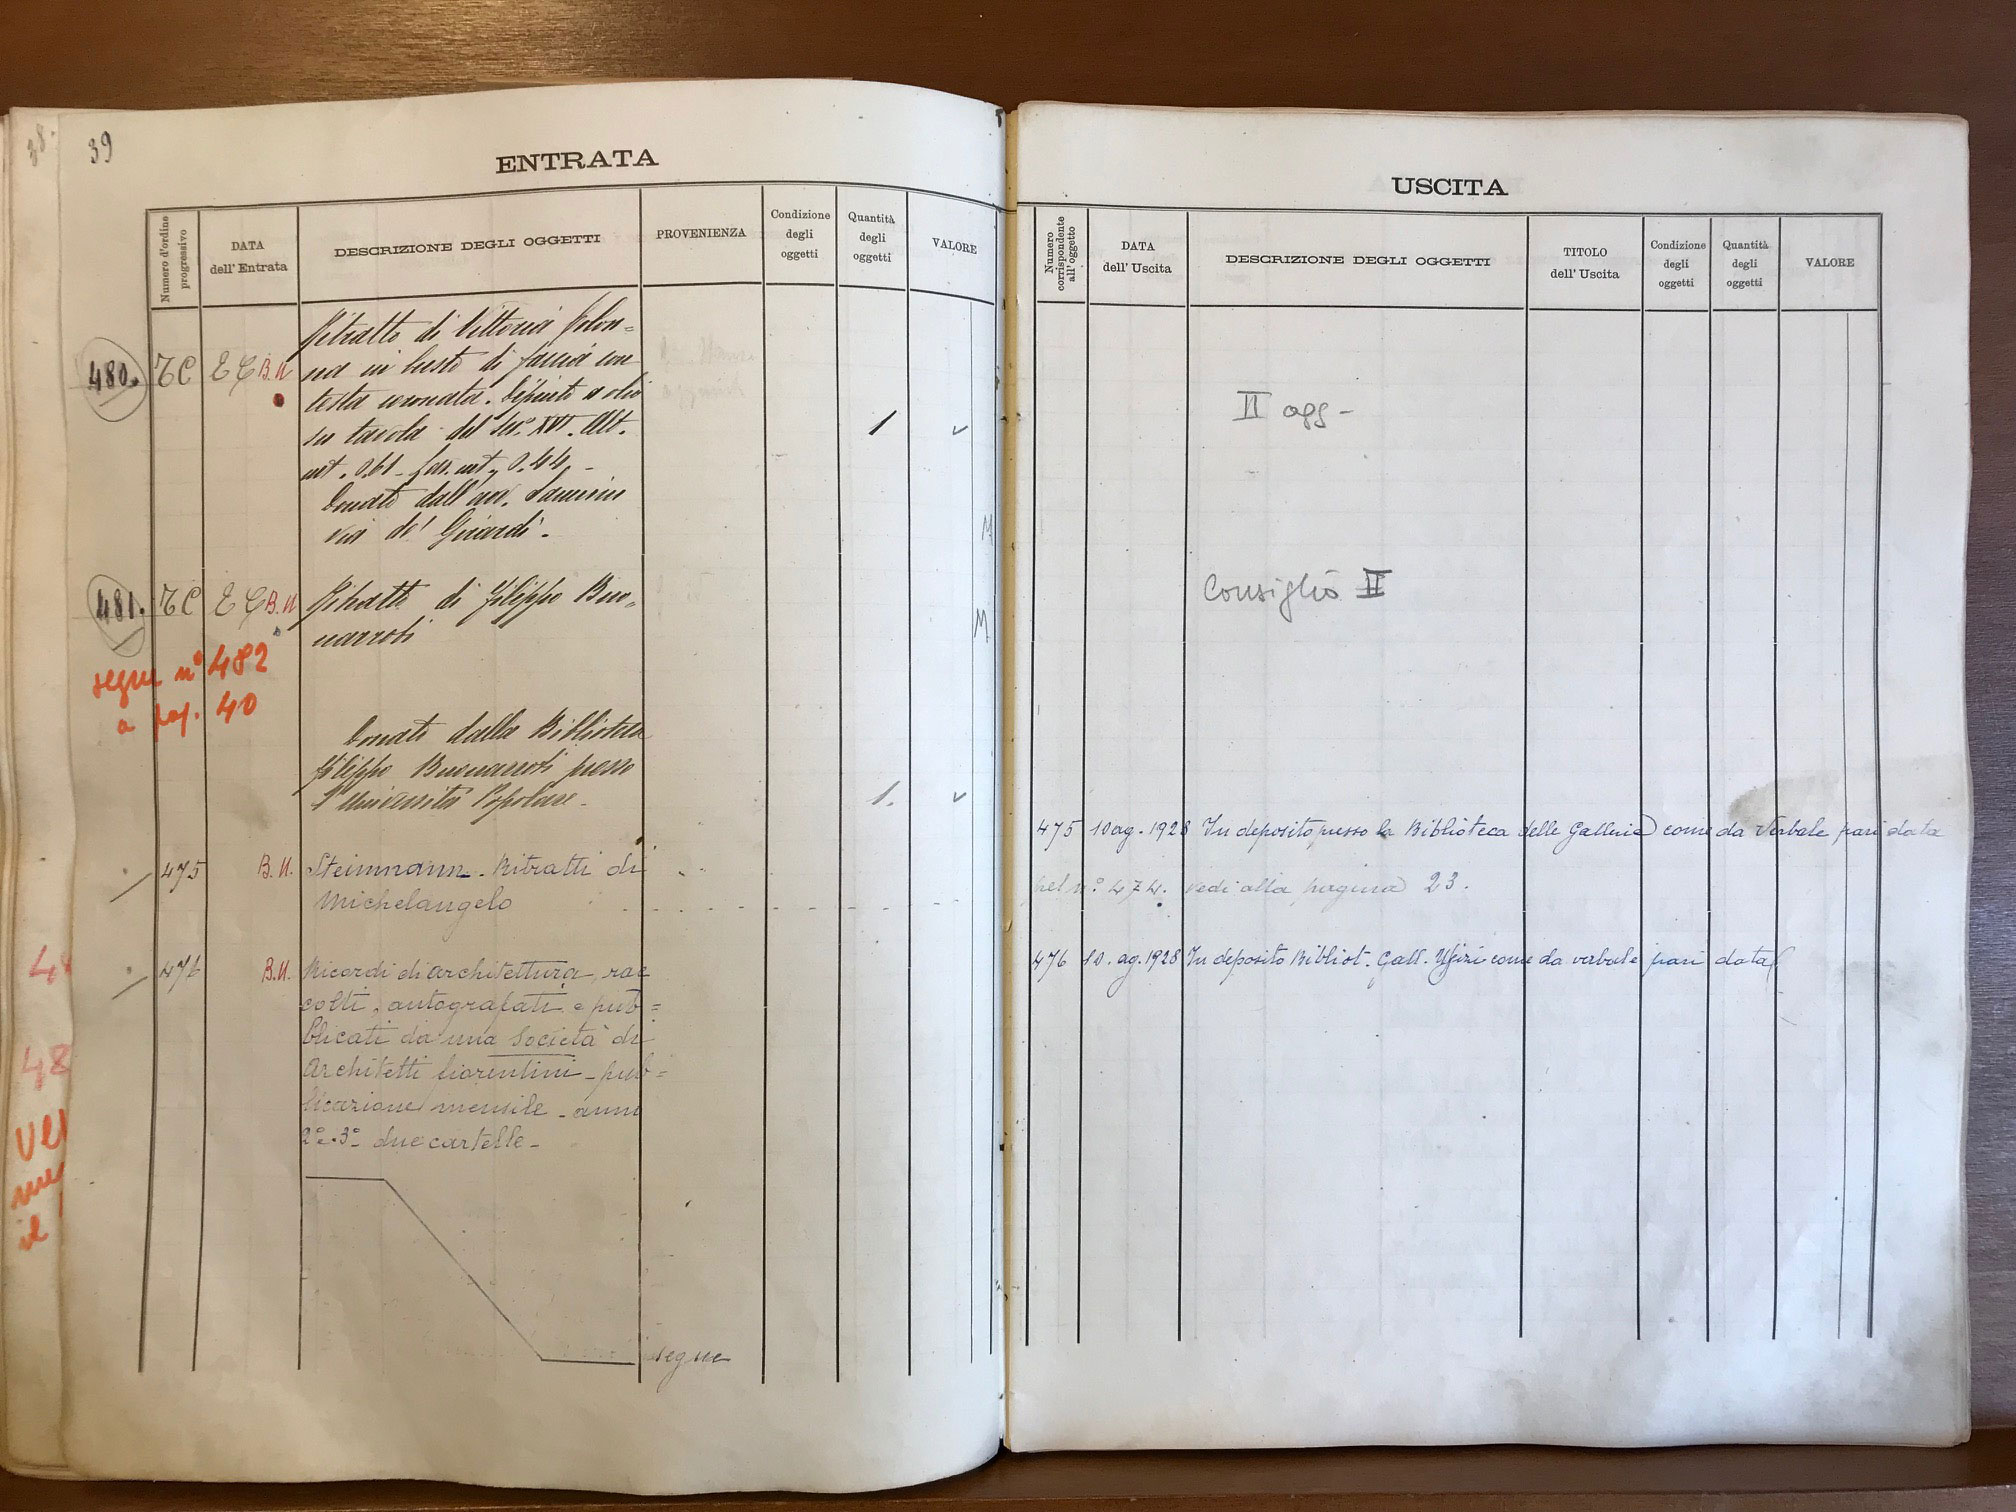 39
ENTRATA
Numero d'ordine progressivo
DATA dell' Entrata
DESCRIZIONE DEGLI OGGETTI
PROVENIENZA
Condizione degli oggetti
Quantità degli oggetti
VALORE
480. TC E C B.U. Ritratto di Vittoria Colon=
na in busto di faccia con
testa coronata. Dipinto a olio
su tavola del Sec. XVI. Alt. 1
mt. 0.61 - Lar. mt. 0.44 -
Donato dall'avv.
via de' Ginardi. M
481. TC E C B.U. Ritratto di Filippo Buo=
narroti M
segue n° 482
a pag. 40
Donato dalla Biblioteca
Filippo Buonarroti presso
l'Università Popolare - 1.
475 B.U. Steinmann - Ritratti di
Michelangelo
476 B.U. Ricordi di architettura, rac
colti, autografati e pub=
blicati da una Società di
Architetti fiorentini - pub=
licazione mensile - anni
2° e 3° - due cartelle -
segue
USCITA
Numero corrispondente all'oggetto
DATA dell' Uscita
DESCRIZIONE DEGLI OGGETTI
TITOLO dell' Uscita
Condizione degli oggetti
Quantità degli oggetti
VALORE
II agg -
Consiglio II
475 10 ag. 1928 In deposito presso la Biblioteca delle Gallerie come da Verbale pari data
pel n° 474. vedi alla pagina 23.
476 10. ag. 1928 In deposito Bibliot. Gall. Uffizi come da verbale pari data